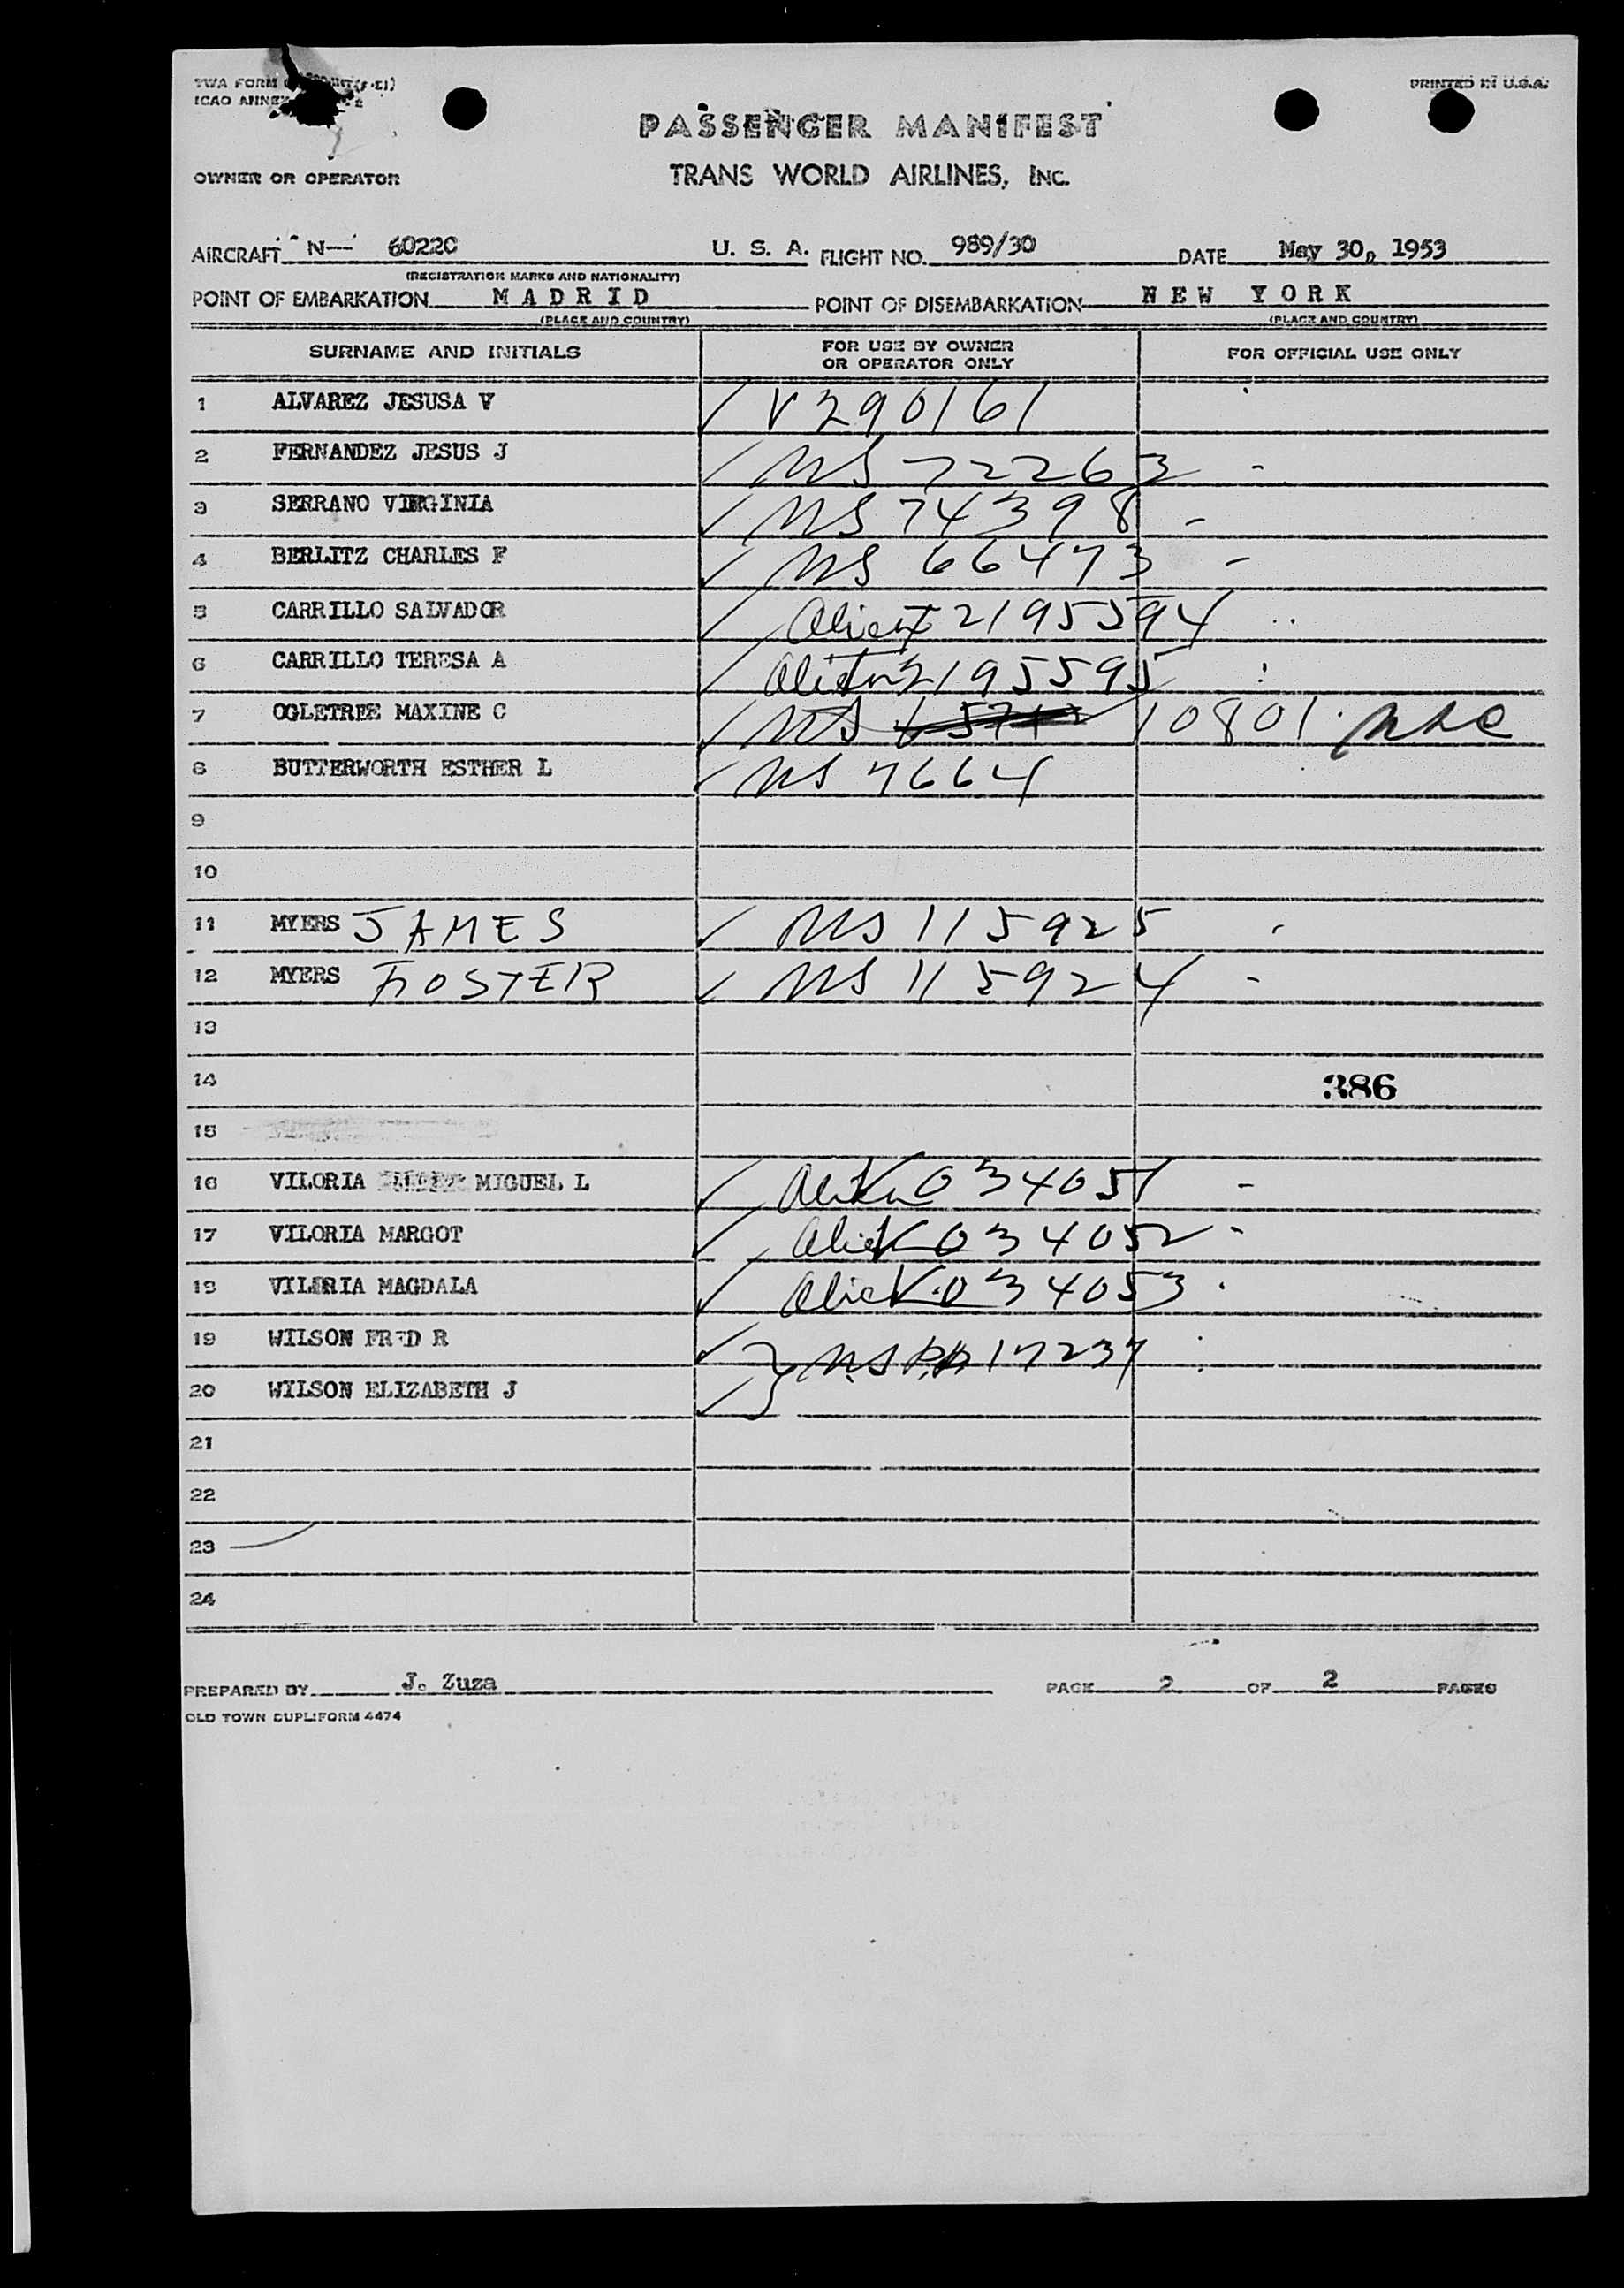 TWA FORM
ICAO ANNEX
PRINTED IN U.S.A.
PASSENGER MANIFEST
OWNER OR OPERATOR
TRANS WORLD AIRLINES, INC.
AIRCRAFT N— 6022C U. S. A. FLIGHT NO. 989/30 DATE May 30, 1953
(REGISTRATION MARKS AND NATIONALITY)
POINT OF EMBARKATION MADRID POINT OF DISEMBARKATION NEW YORK
(PLACE AND COUNTRY) (PLACE AND COUNTRY)
SURNAME AND INITIALS FOR USE BY OWNER OR OPERATOR ONLY FOR OFFICIAL USE ONLY
1 ALVAREZ JESUSA V ✓ V290161
2 FERNANDEZ JESUS J ✓ US 72263 -
3 SERRANO VIRGINIA ✓ US 74398 -
4 BERLITZ CHARLES F ✓ US 66473 -
5 CARRILLO SALVADOR ✓ Alien 2195594
6 CARRILLO TERESA A ✓ Alien 2195595
7 OGLETREE MAXINE C ✓ US 10801
8 BUTTERWORTH ESTHER L ✓ US 7664
9
10
11 MYERS JAMES ✓ US 115925
12 MYERS FOSTER ✓ US 115924 -
13
14 386
15
16 VILORIA MIGUEL L ✓ 034051 -
17 VILORIA MARGOT ✓ 034052 -
18 VILORIA MAGDALA ✓ 034053
19 WILSON FRED R ✓ } US 17237
20 WILSON ELIZABETH J ✓
21
22
23
24
PREPARED BY J. Zuza PAGE 2 OF 2 PAGES
OLD TOWN DUPLIFORM 4474